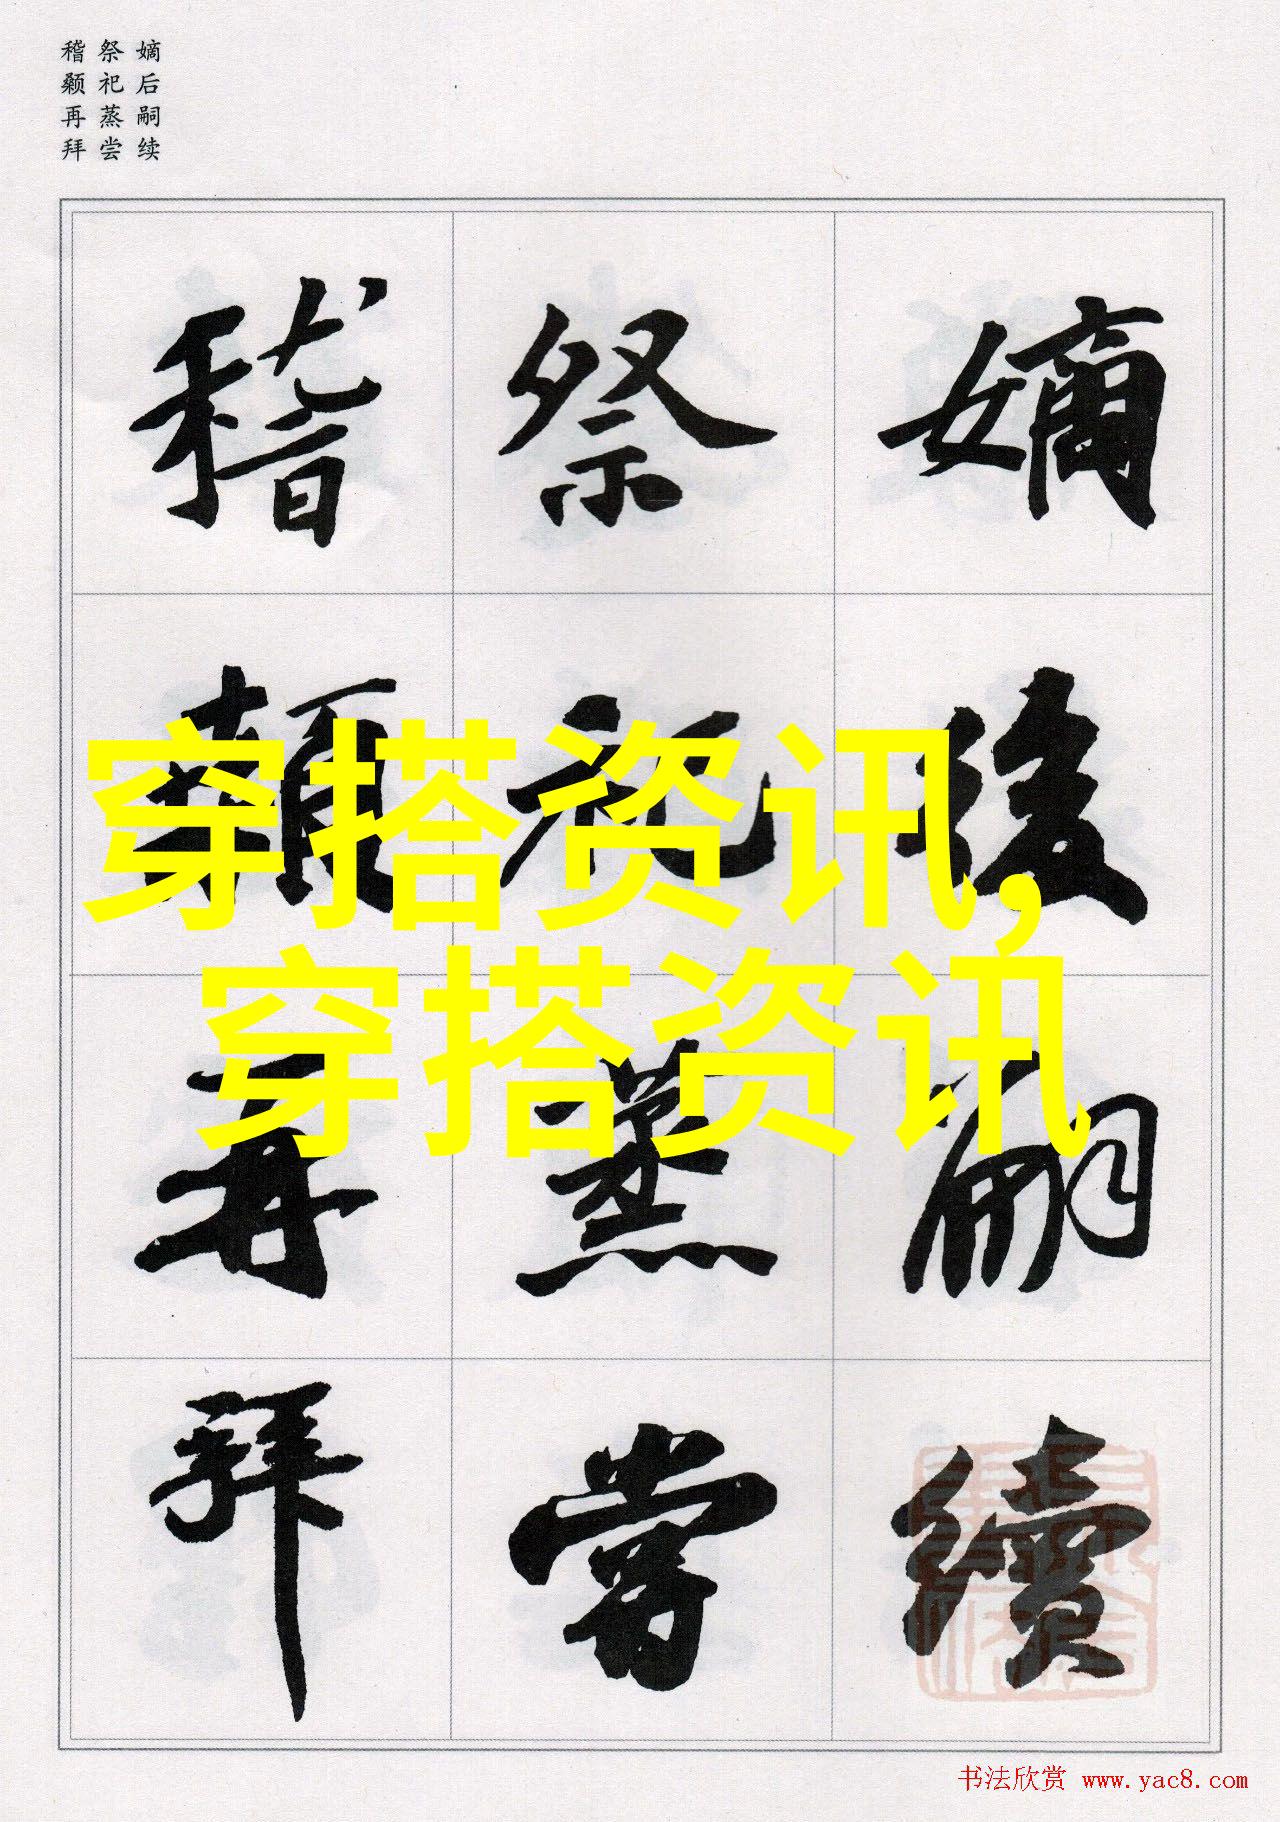 嫡后嗣续
祭祀蒸尝
稽颡再拜
嫡後嗣續
祭祀蒸嘗
稽顙再拜
穿搭资讯,
穿搭资讯
书法欣赏 www.yac8.com